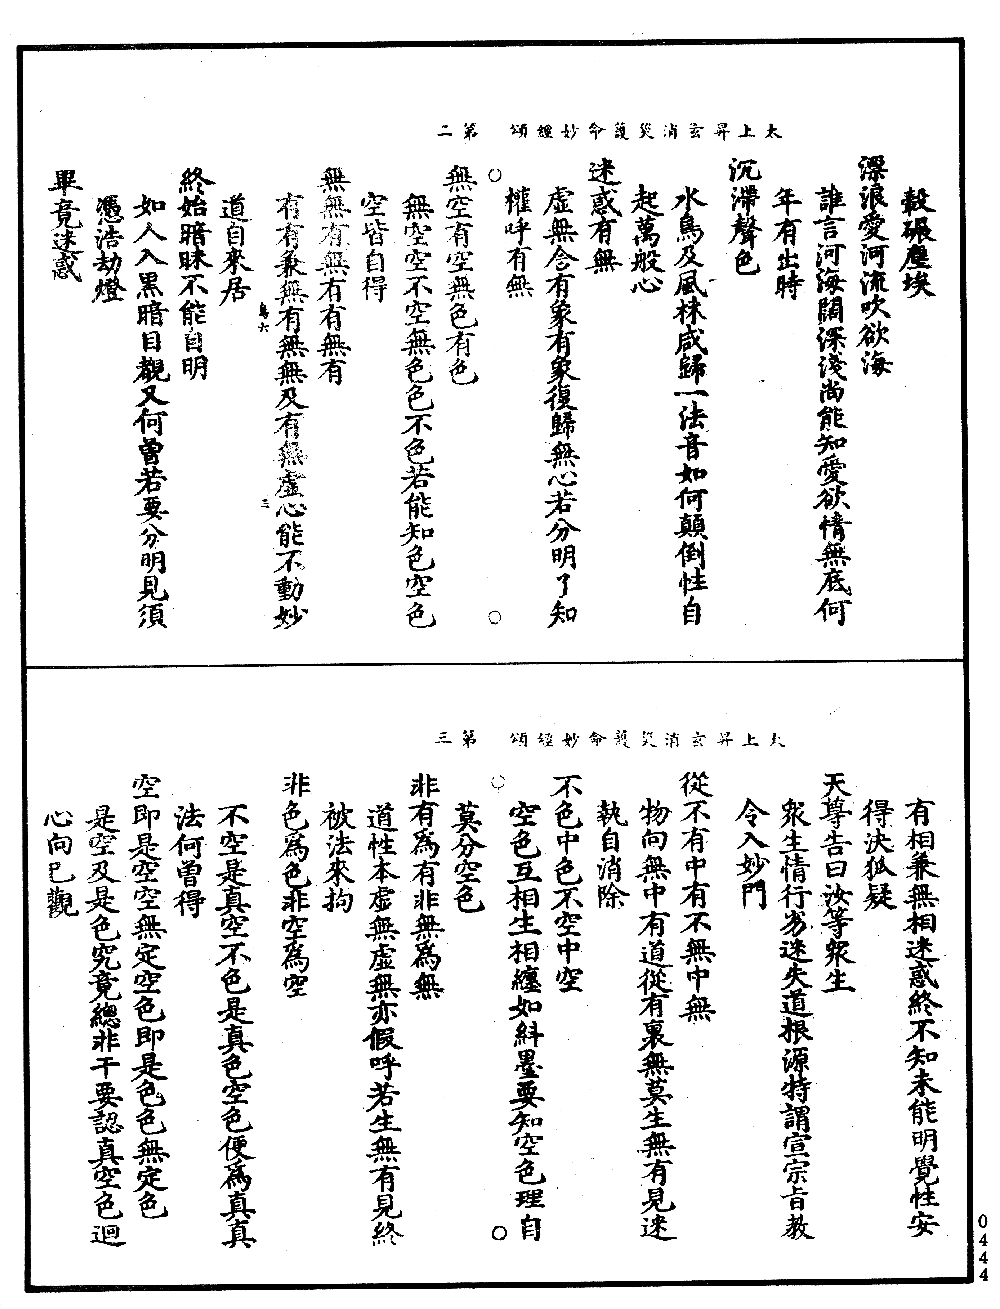 太上昇玄消災護命妙經頌　第二
轂碾塵埃
漂浪愛河流吹欲海
誰言河海闊深淺尚能知愛欲情無底何
年有出時
沉滯聲色
水鳥及風林咸歸一法音如何顛倒性自
起萬般心
迷惑有無
虛無含有象有象復歸無心若分明了知
權呼有無
無空有空無色有色
無空空不空無色色不色若能知色空色
空皆自得
無無有無無有有無有
有有兼無有無無及有無虛心能不動妙
道自來居
鳥六
三
終始暗昧不能自明
如人入黑暗目觀又何曾若要分明見須
憑浩劫燈
畢竟迷惑
太上昇玄消災護命妙經頌　第三
有相兼無相迷惑終不知未能明覺性安
得決狐疑
天尊告曰汝等眾生
眾生情行劣迷失道根源特謂宣宗旨教
令入妙門
從不有中有不無中無
物向無中有道從有裏無莫生無有見迷
執自消除
不色中色不空中空
空色互相生相纏如糾墨要知空色理自
莫分空色
非有爲有非無爲無
道性本虛無虛無亦假呼若生無有見終
被法來拘
非色爲色非空爲空
不空是真空不色是真色空色便爲真真
法何曾得
空即是空空無定空色即是色色無定色
是空及是色究竟總非干要認真空色迴
心向己觀
0444